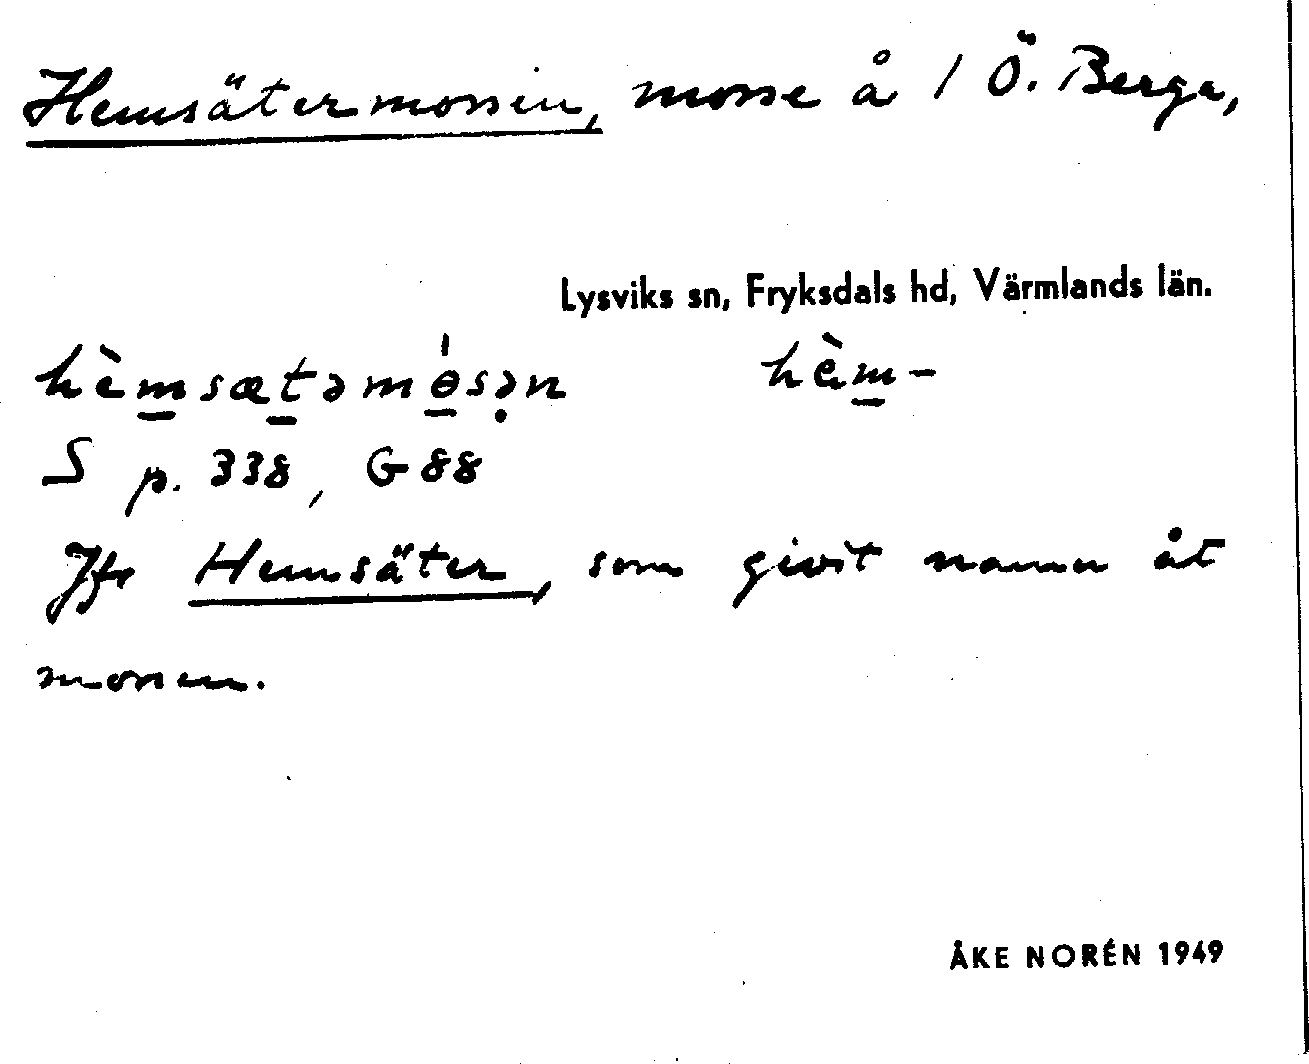 Hemsätermossen, mosse å 1 Ö. Berga,
Lysviks sn, Fryksdals hd, Värmlands län.
hèmsætəmɵ́sən hèm-
S p. 338, G 88
Jfr Hemsäter, som givit namn åt
mossen.
ÅKE NORÉN 1949